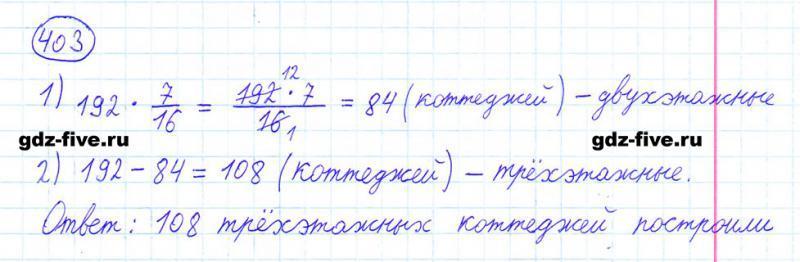 403
1) 192 · 7/16 = 192 12 · 7 / 16 1 = 84 (коттеджей) – двухэтажные
gdz-five.ru gdz-five.ru
2) 192 – 84 = 108 (коттеджей) – трёхэтажные.
Ответ: 108 трёхэтажных коттеджей построили